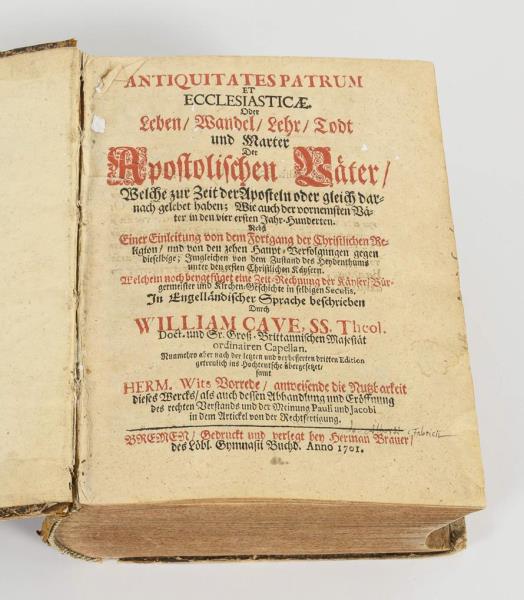 ANTIQUITATES PATRUM
ET
ECCLESIASTICÆ.
Oder
Leben/ Wandel/ Lehr/ Todt
und Marter
Der
Apostolischen Väter/
Welche zur Zeit der Aposteln oder gleich dar-
nach gelebet haben; Wie auch der vornemsten Vä-
ter in den vier ersten Jahr-Hunderten.
Nebst
Einer Einleitung von dem Fortgang der Christlichen Re-
ligion/ und von den zehen Haupt-Verfolgungen gegen
dieselbige; Imgleichen von dem Zustand des Heydenthums
unter den ersten Christlichen Käysern.
Welchem noch beygefüget eine Zeit-Rechnung der Käyser/ Bür-
germeister und Kirchen-Geschichte in selbigen Seculis.
In Engelländischer Sprache beschrieben
Durch
WILLIAM CAVE, SS. Theol.
Doct. und Sr. Groß-Brittannischen Majestät
ordinairen Capellan.
Nunmehro aber nach der letzten und verbesserten dritten Edition
getreulich ins Hochteutsche übergesetzet/
samt
HERM. Wits Vorrede/ anweisende die Nutzbarkeit
dieses Wercks/ als auch dessen Abhandlung und Eröffnung
des rechten Verstands und der Meinung Pauli und Jacobi
in dem Artickel von der Rechtfertigung.
BREMEN/ Gedruckt und verlegt bey Herman Brauer/
des Löbl. Gymnasii Buchd. Anno 1701.